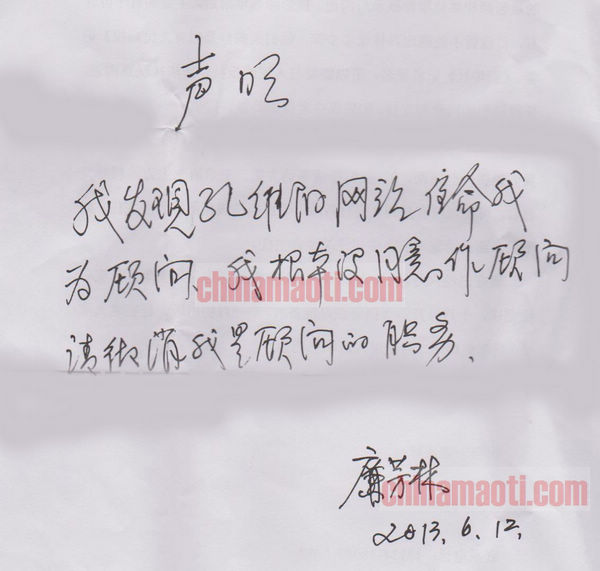 声明
我发现孔维克的网站任命我
为顾问、我根本没同意作顾问
chinamaoti.com
请撤消我是顾问的职务.
廉芳林
chinamaoti.com
2013.6.12.